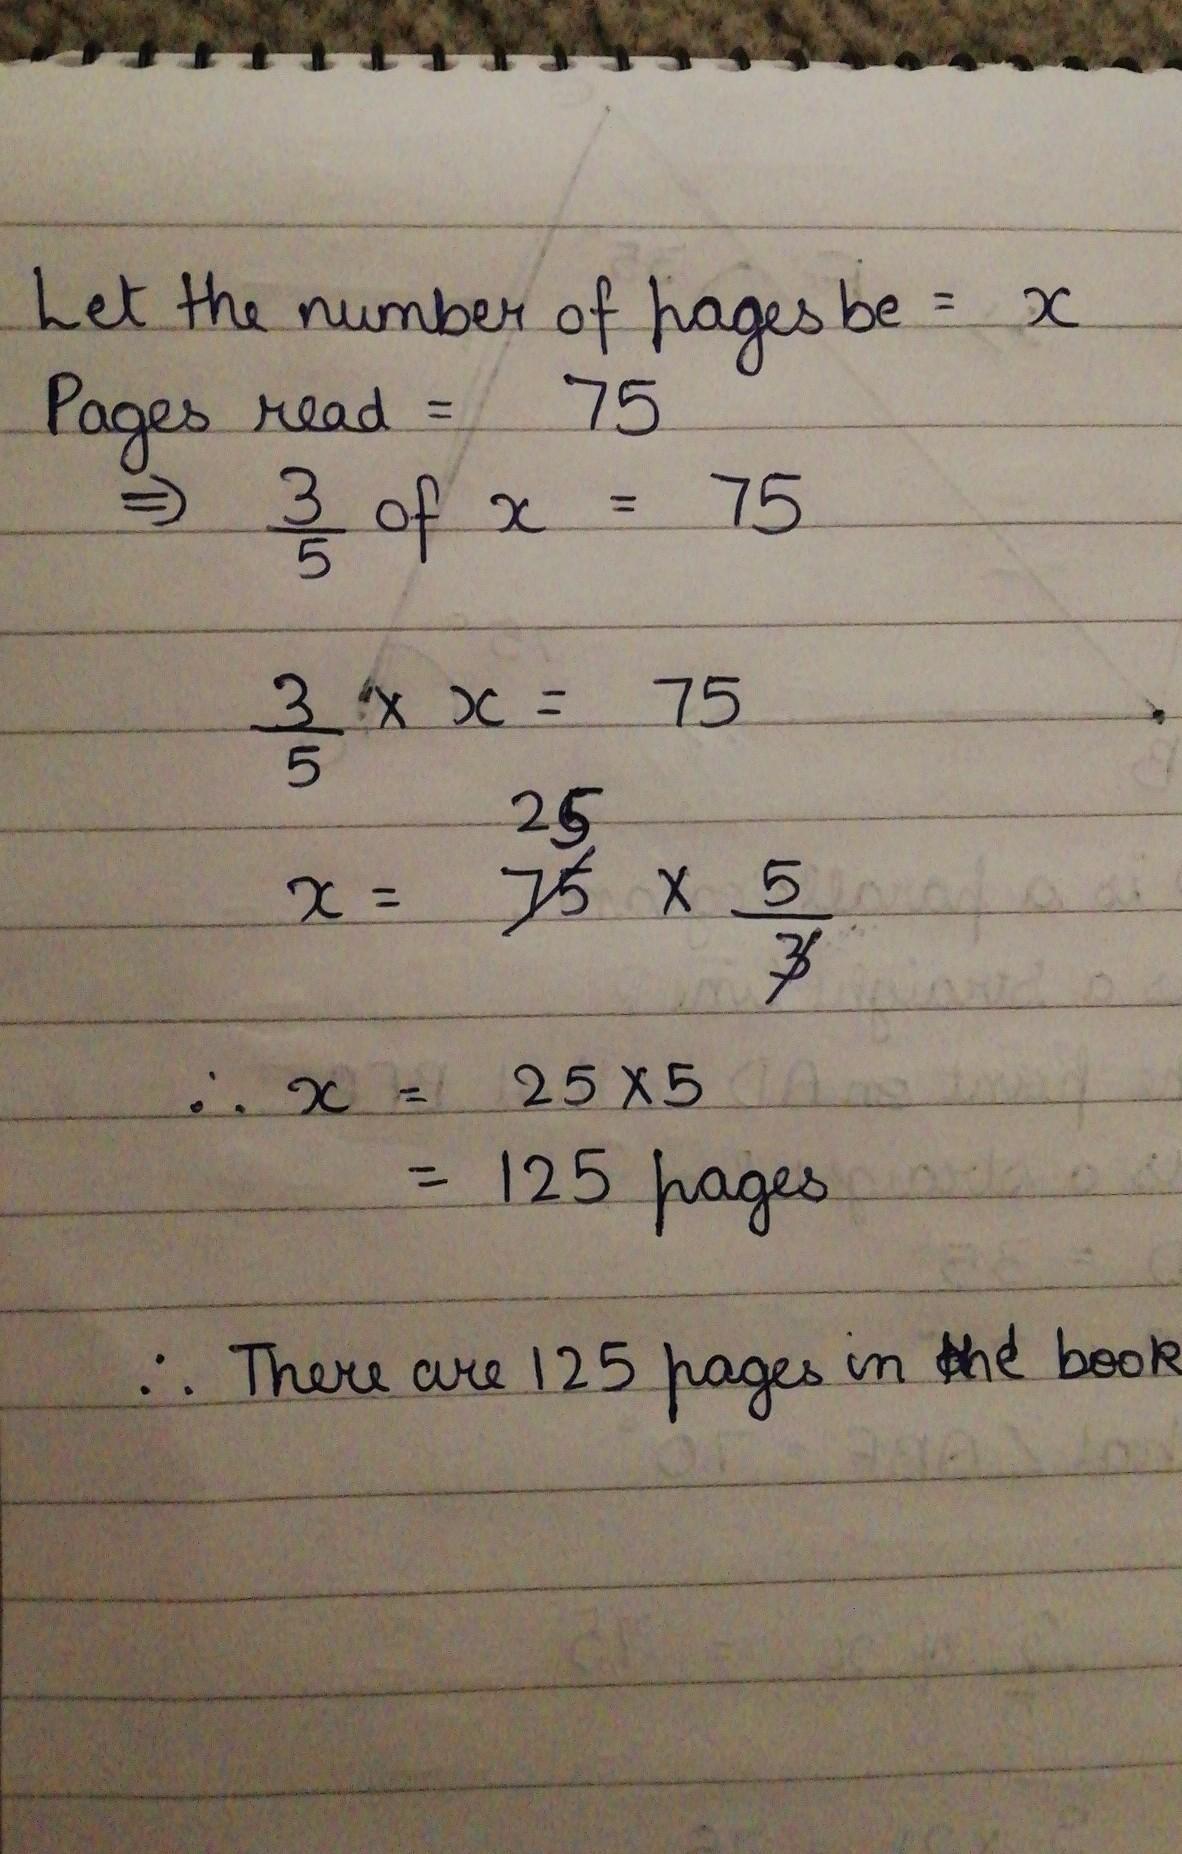 Let the number of pages be = x
Pages read = 75
⇒ 3/5 of x = 75
3/5 × x = 75
25
x = 75 × 5/3
∴ x = 25 × 5
= 125 pages
∴ There are 125 pages in the book